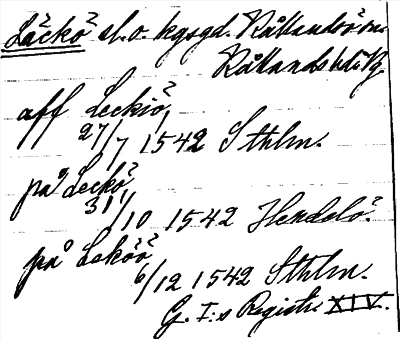 Läckö sl. o. kgsgd. Kållandsö sn.
Kållands hd. Vg
aff Leckiö
27/7 1542 Sthlm.
på Leckö
31/10 1542 Hendelö.
på Leköö
6/12 1542 Sthlm.
G. I:s Registr. XIV.